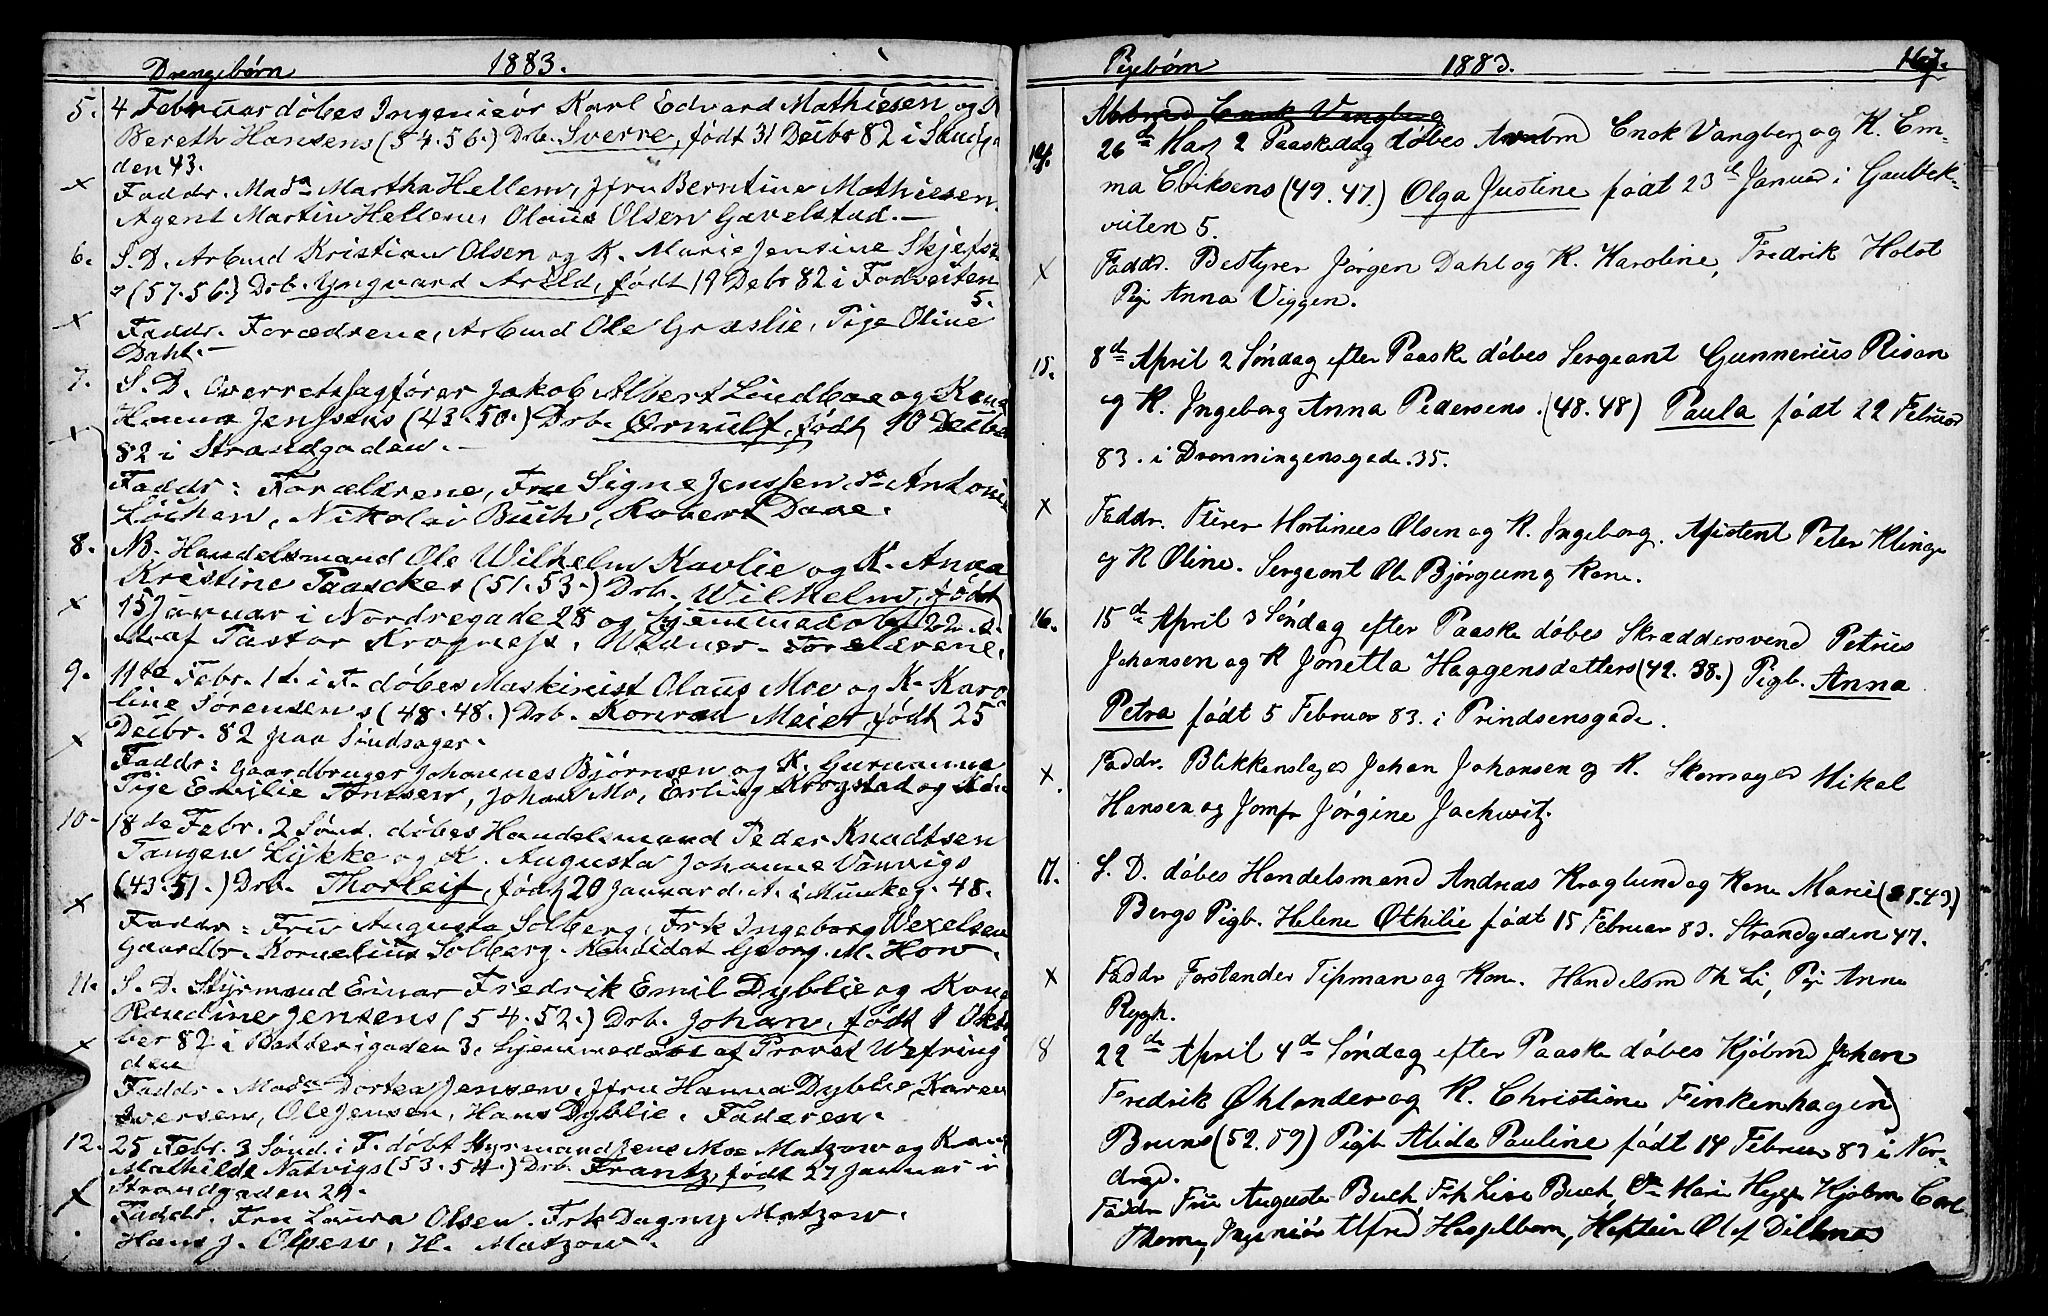 Drengebørn 1883.
5. 4 Februar døbes Ingenieør Karl Edvard Mathiesen og K
Bereth Hansens (54.56.) Drb. Sverre, født 31 Decbr 82 i Sandga
den 43.
x Faddr. Mada Martha Hellem, Jfru Berntine Mathiesen
Agent Martin Hellem, Olaus Olsen Gavelstad.—
6. S. D. Arbmd Kristian Olsen og K. Marie Jensine Skjefst
(57.56.) Drb. Yngvard Arild, født 19 Debr 82 i Fadveiten
5.
x Faddr. Forældrene, Arbmd Ole Græslie, Pige Oline
Dahl.—
7. S. D. Overretssagfører Jakob Albert Lindboe og Kone
Hanna Jenssens (43.50.) Drb. Ørnulf, født 10 Decbr
x 82 i Strandgaden.—
Faddr: Forældrene, Fru Signe Jenssen, do Antonie
Løchen, Nikolai Buch, Robert Daae.
8. NB. Handelsmand Ole Wilhelm Kavlie og K. Anna
Kristine Paasckes (51.53.) Drb. Wilhelm, født
x 15 Januar i Nordregade 28 og hjemmedøbt 22 s. M.
af Pastor Krogness. Vidner. Forældrene.
9. 11te Febr. 1 S. i F. døbes Maskinist Olaus Moe og K. Karo
line Sørensens (48.48.) Drb. Konrad Meier, født 25
x Decbr. 82 paa Sindsager.
Faddr: Gaardbruger Johannes Bjørnsen og K. Gurianna
Pige Emilie Tønsen, Johan Mo, Erling Krogstad og
10. 18de Febr. 2 Sønd. døbes Handelsmand Peder Knudtsen
Tangen Lykke og K. Augusta Johanne Vanvigs
x (43.51.) Drb. Thorleif, født 20 Januar d. A. i Munkeg. 48.
Faddr: Fru Augusta Solberg, Frk Ingeborg Wexelsen
Gaardbr. Kornelius Solberg. Kandidat Georg M. How.
11. S. D. Styrmand Einar Fredrik Emil Dyblie og Kone
Randine Jensens (54.52.) Drb. Johan, født 1 Okto
x ber 82 i Batterigaden 3. Hjemmedøbt af Provst Wefring
den
Faddr. Mada Dortea Jensen, Jfru Hanna Dyblie, Karen
Iversen, Ole Jensen, Hans Dyblie. Faderen.
12. 25 Febr. 3 Sønd. i F. døbt Styrmand Jens Moe Matzow og Kone
Mathilde Natvigs (53.54.) Drb. Frantz, født 27 Januar i
x Strandgaden 29.
Faddr. Fru Laura Olsen. Frk Dagny Matzow.
Hans J. Olsen, H. Matzow.
Pigebørn 1883. 167.
Arbmd Enok Vangberg
14. 26de Marz 2 Paaskedag døbes Arbmd Enok Vangberg og K. Em-
ma Eriksens (49.47.) Olga Justine født 23de Januar i Gaubek-
veiten 5.
x Faddr. Bestyrer Jørgen Dahl og K. Karoline, Fredrik Holst
Pige Anna Viggen.
15. 8de April 2 Søndag efter Paaske døbes Sergeant Gunnerius Risan
og K. Ingeborg Anna Pedersens. (48.48) Paula født 22 Februar
83. i Dronningensgade. 35.
x Faddr. Murer Mortinus Olsen og K. Ingeborg. Assistent Peter Klinge
og K Oline. Sergeant Ole Bjørgum og Kone.
16. 15de April 3 Søndag efter Paaske døbes Skræddersvend Petrus
Johansen og K Jonetta Haggensdatters (49.38.) Pigb. Anna
Petra født 5 Februar 83. i Prindsensgade.
x Faddr. Blikkenslager Johan Johansen og K. Skomager Mikal
Hansen og Jomfr Jørgine Jachwitz.
17. S. D. døbes Handelsmand Andreas Kraglund og Kone Marie (28.49.)
Bergs Pigb. Helene Othilie født 15 Februar 83. Strandgaden 47.
x Faddr Forstander Tipman og Kone. Handelsm Th Li, Pige Anne
Rygh.
18 22de April 4de Søndag efter Paaske døbes Kjøbmd Johan
Fredrik Øhlander og K. Christiane Finkenhagen
Bruns (52.59) Pigb Alida Pauline født 14 Februar 83 i Nor-
dregd.
Faddr Frue Augusta Buch Frk Lise Buch, Marie Hygge Kjøbm Carl
Thorne, Ingeniør Alfred Hasselbom, Olaf Dillmer